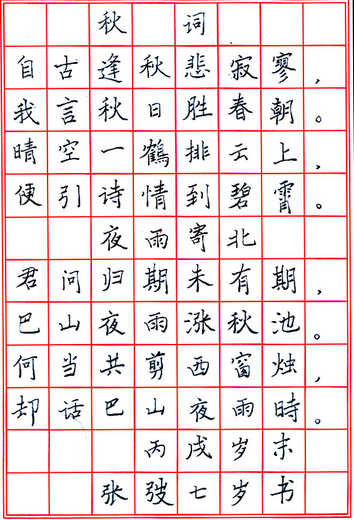 秋 词
自古逢秋悲寂寥，
我言秋日胜春朝。
晴空一鶴排云上，
便引诗情到碧霄。
夜雨寄北
君问归期未有期，
巴山夜雨涨秋池。
何当共剪西窗烛，
却话巴山夜雨時。
丙戌岁末
张弢七岁书